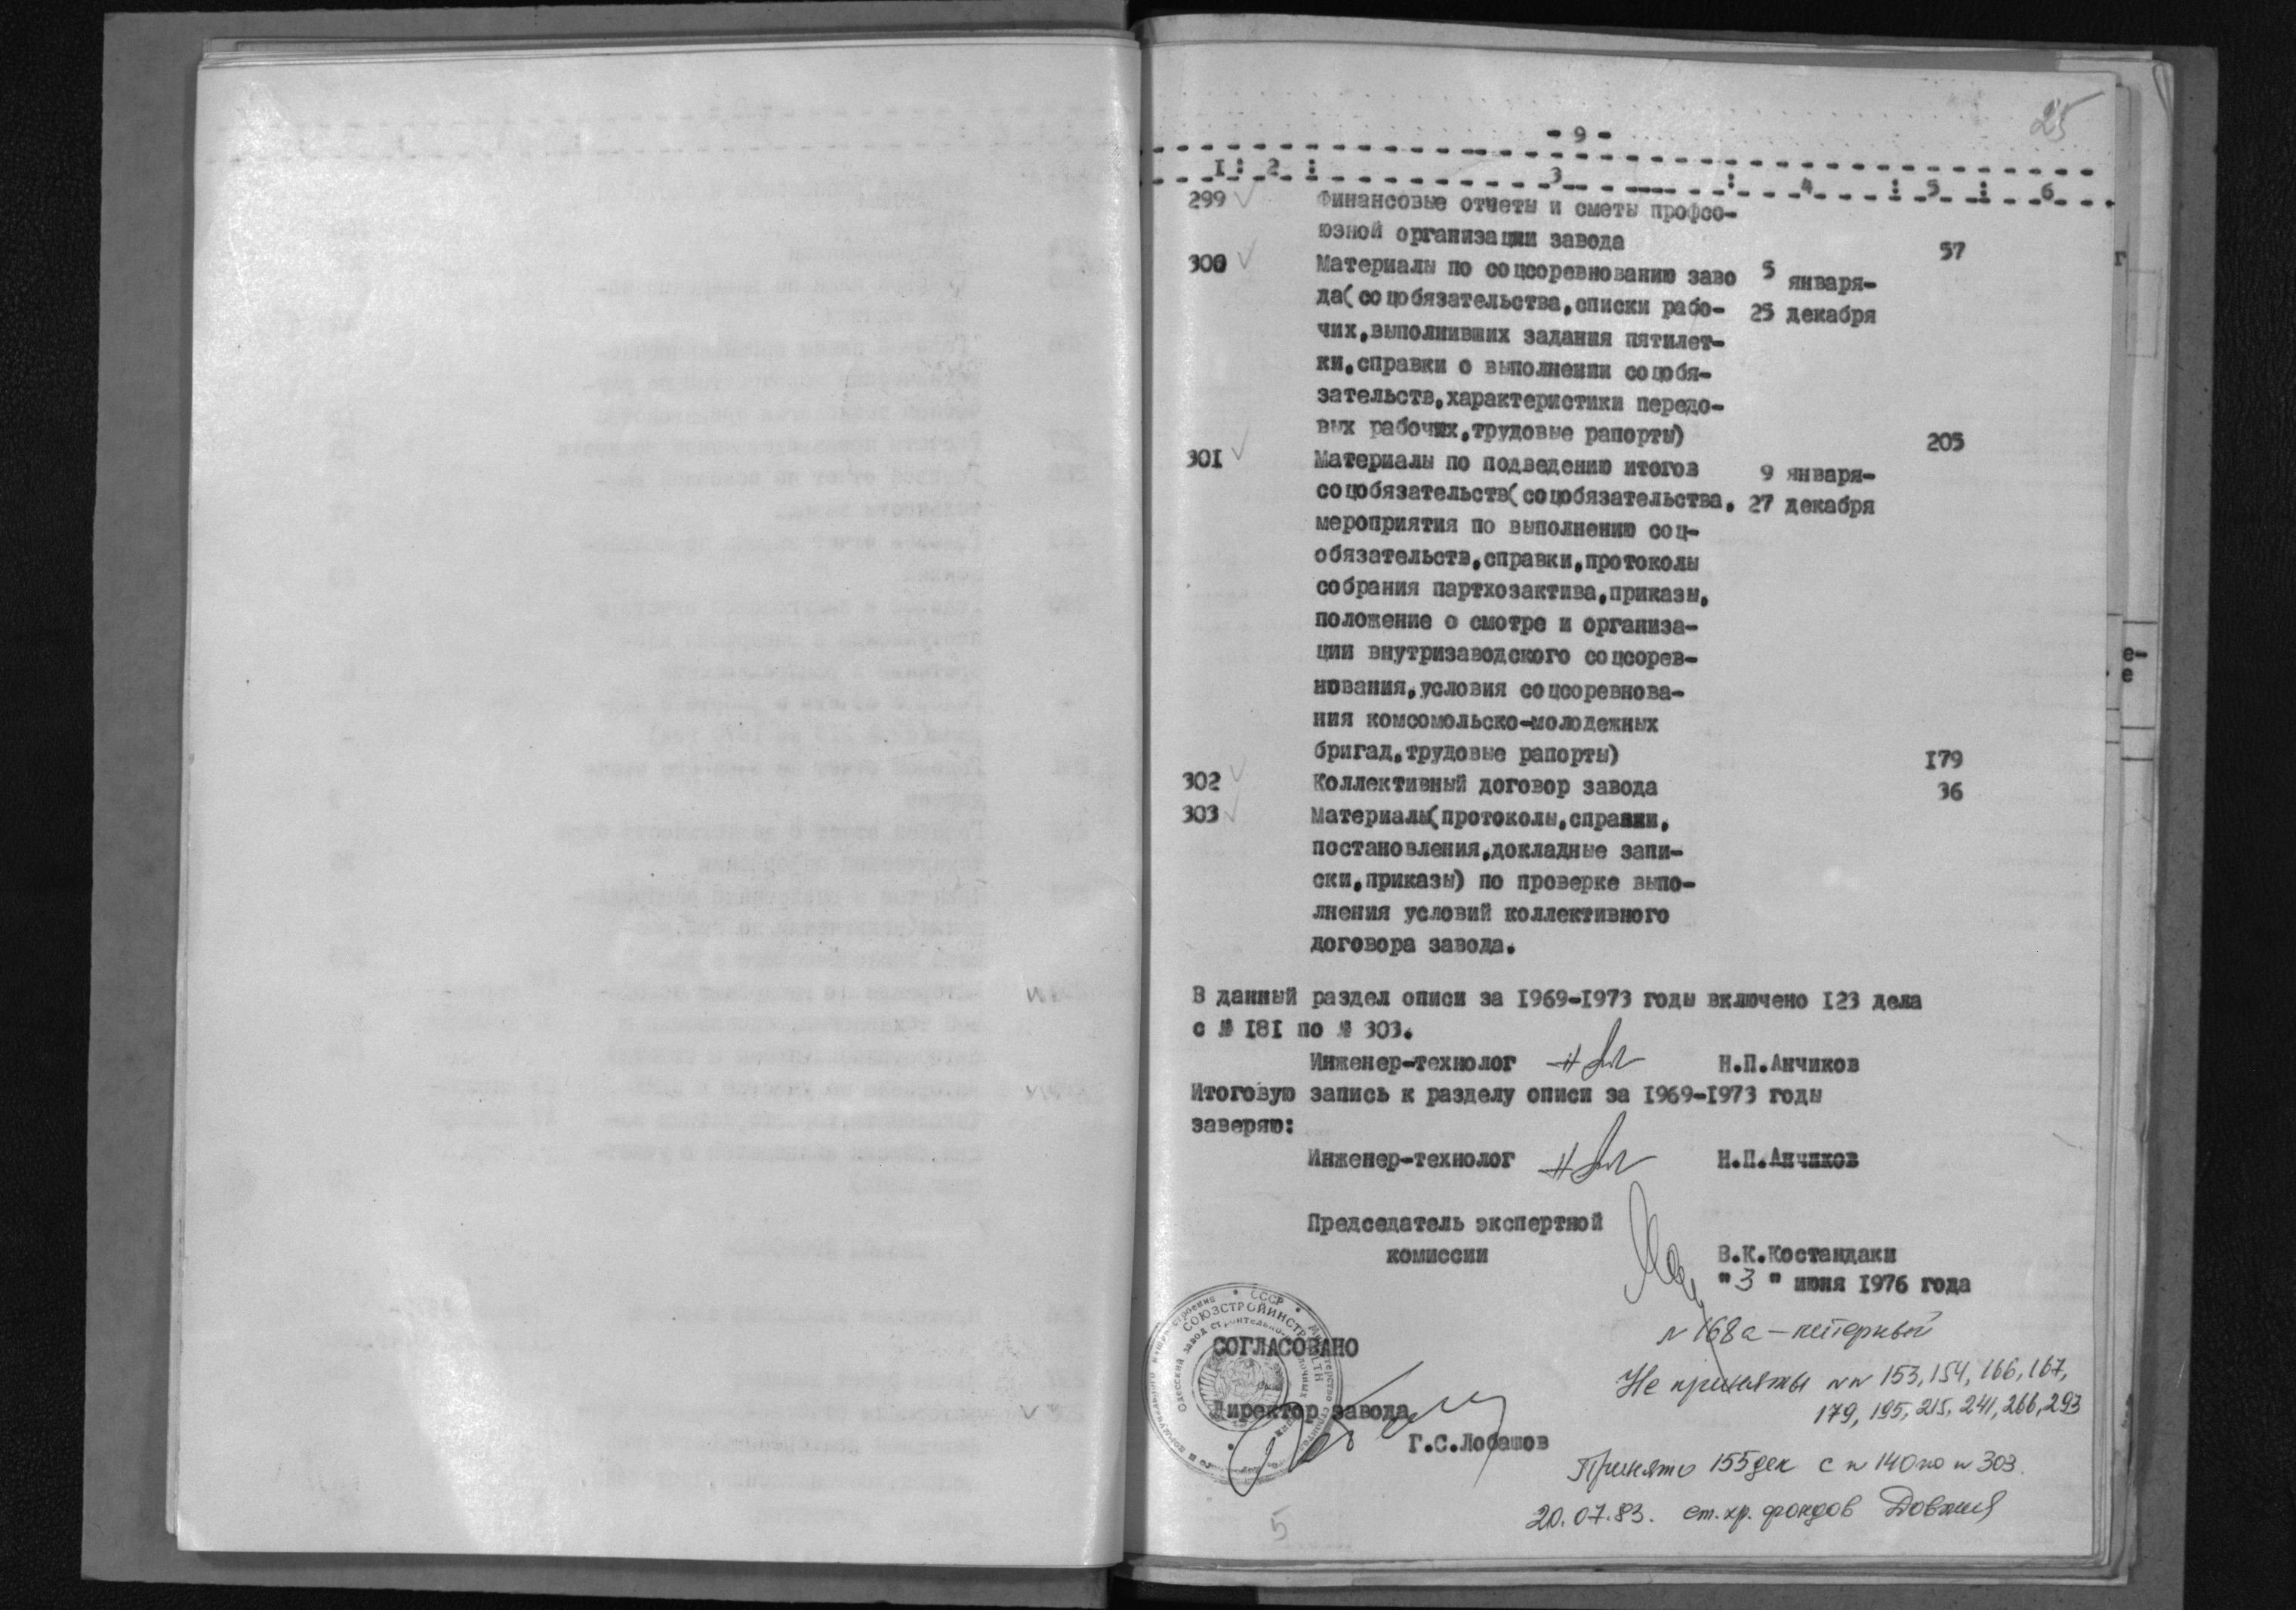 25
- 9 -
1 : 2 : 3 : 4 : 5 : 6
299 Финансовые отчеты и сметы профсо-
юзной организации завода 57
300 Материалы по соцсоревнованию заво 5 января-
да(соцобязательства,списки рабо- 25 декабря
чих,выполнивших задания пятилет-
ки,справки о выполнении соцобя-
зательств,характеристики передо-
вых рабочих,трудовые рапорты) 205
301 Материалы по подведению итогов 9 января-
соцобязательств(соцобязательства, 27 декабря
мероприятия по выполнению соц-
обязательств,справки,протоколы
собрания партхозактива,приказы,
положение о смотре и организа-
ции внутризаводского соцсорев-
нования,условия соцсоревнова-
ния комсомольско-молодежных
бригад,трудовые рапорты) 179
302 Коллективный договор завода 36
303 Материалы(протоколы,справки,
постановления,докладные запи-
ски,приказы) по проверке выпо-
лнения условий коллективного
договора завода.
В данный раздел описи за 1969-1973 годы включено 123 дела
с № 181 по № 303.
Инженер-технолог Н.П.Анчиков
Итоговую запись к разделу описи за 1969-1973 годы
заверяю:
Инженер-технолог Н.П.Анчиков
Председатель экспертной
комиссии В.К.Костандаки
"3" июня 1976 года
№ 168а — литерный
СОГЛАСОВАНО
Не приняты №№ 153, 154, 166, 167,
179, 195, 215, 241, 266, 293
Директор завода
Г.С.Лобашов
Принято 155 дел с № 140 по № 303.
20.07.83. ст. хр. фондов
5